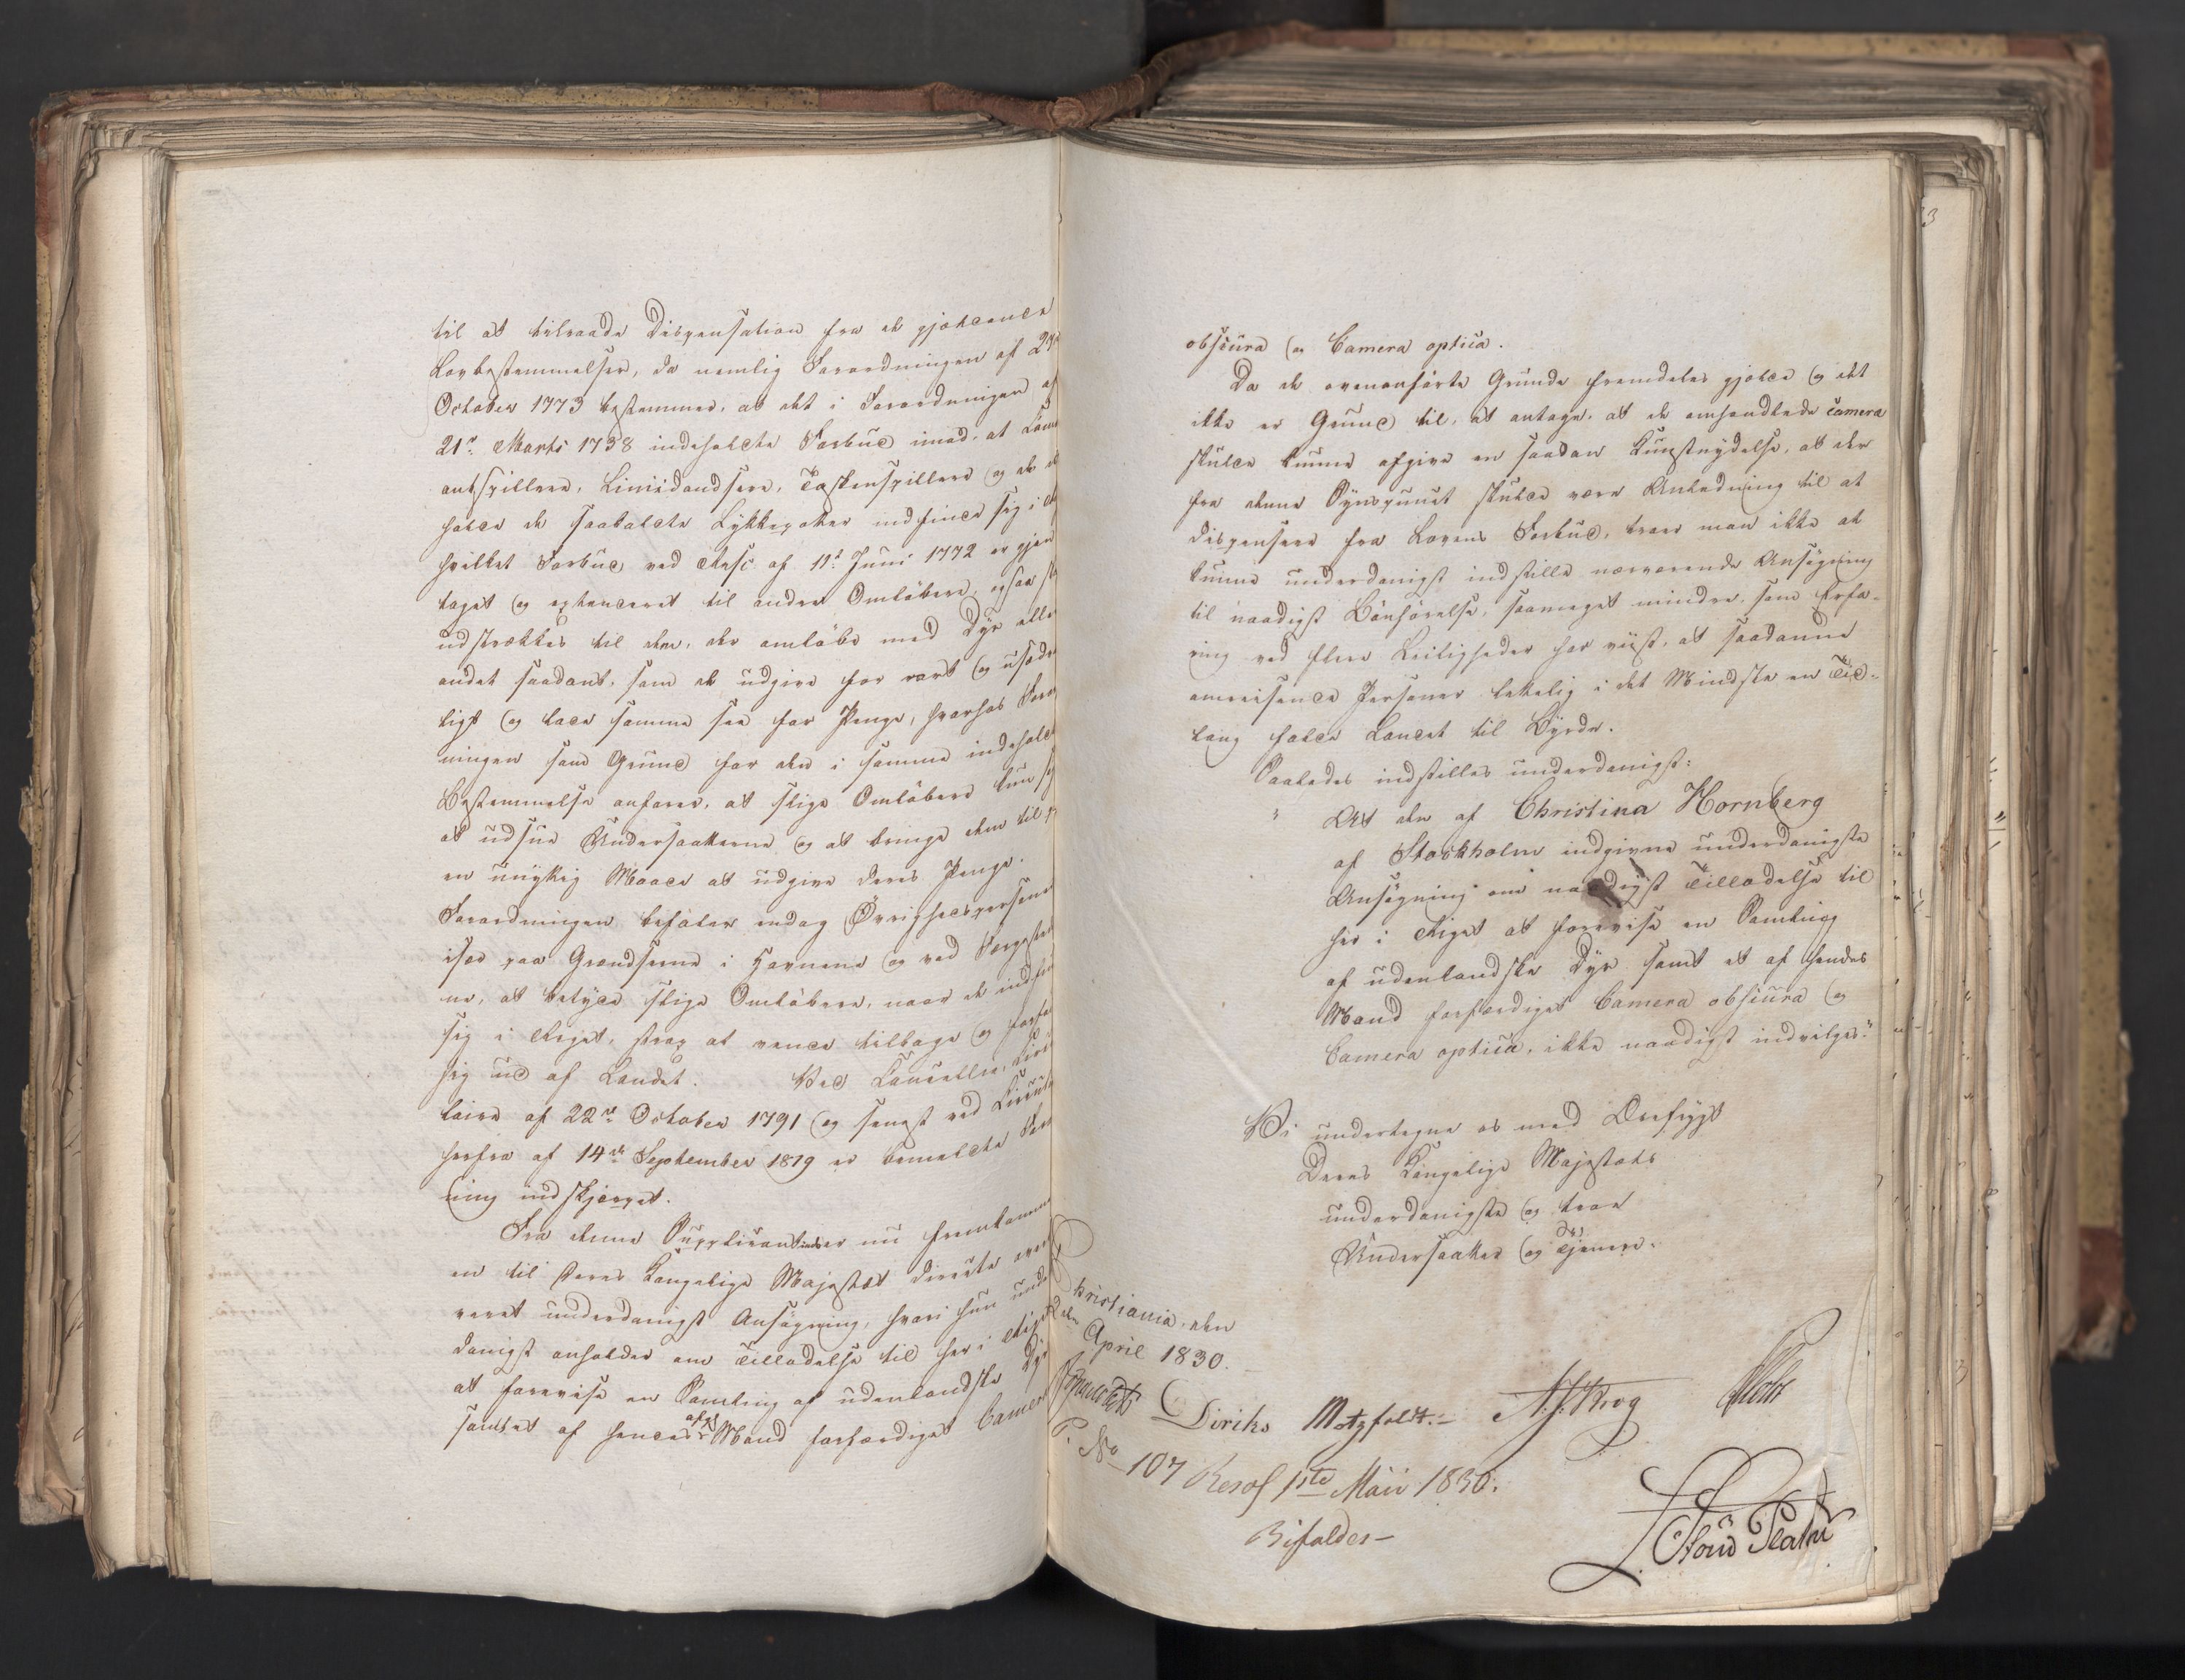 til at tilraade Dispensation fra de gjældende
Lovbestemmelser, da nemlig Forordningen af 27de
October 1773 bestemmer, at det i Forordningen af
21de Marts 1738 indeholdte Forbud imod, at Com
antspillere, Liniedandsere, Taskenspillere og de der
holde de saakaldte Lykkepotter indfinde sig i
hvilket Forbud ved Resc: af 11te Juni 1772 er gjen
taget og extenderet til andre Omløbere, ogsaa
udstrækkes til dem, der omløbe med Dyr eller
andet saadant, som de udgive for rart og usædvan
ligt og lade samme see for Penge, hvorhos Foro
ningen som Grund for den i samme indeholdte
Bestemmelse anfører, at slige Omløbere kun
at udsue Undersaatterne og at bringe dem til
en unyttig Maade at udgive deres Penge.
Forordningen befaler endog Øvrighedspersoner
især paa Grændserne i Havnene og ved Færgeste
ne, at betyde slige Omløbere, naar de indfin
sig i Riget, strax at vende tilbage og forføie
sig ud af Landet. Ved Cancellie, Circu
laire af 22de October 1791 og senest ved Circul
herfra af 14de September 1819 er bemeldte Foro
ning indskjerpet.
Fra denne Supplicantinde er nu fremkommen
en til Deres Kongelige Majestæt directe over
veret underdanigst Ansøgning, hvori hun under
danigst anholder om Tilladelse til her i Riget
at forevise en Samling af udenlandske Dyr
samt et af hendes Mand forfærdiget Camera
obscura og Camera optica.
Da de ovenanførte Grunde fremdeles gjælde og det
ikke er Grund til, at antage, at de omhandlede Camera
skulde kunne afgive en saadan Kunstnydelse, at der
fra denne Synspunct skulde være Anledning til at
dispensere fra Lovens Forbud, troer man ikke at
kunne underdanigst indstille nærværende Ansøgning
til naadigst Bønhørelse, saameget mindre, som Erfa-
ring ved flere Leiligheder har viist, at saadanne
omreisende Personer lettelig i det Mindste en Tid-
lang falde Landet til Byrde.
Saaledes indstilles underdanigst:
" At den af Christina Hornberg
af Stockholm indgivne underdanigste
Ansøgning om naadigst Tilladelse til
her i Riget at forevise en Samling
af udenlandske Dyr samt et af hendes
Mand forfærdiget Camera obscura og
Camera optica, ikke naadigst indvilges."
Vi undertegne os med Ærefrygt
Deres Kongelige Majestæts
underdanigste og troe
Undersaatter og Tjenere.
Christiania, den
2den April 1830.
Diriks Motzfeldt.- A. J. Krog
P. No 107 Resol 1ste Maii 1830.
Bifaldes-